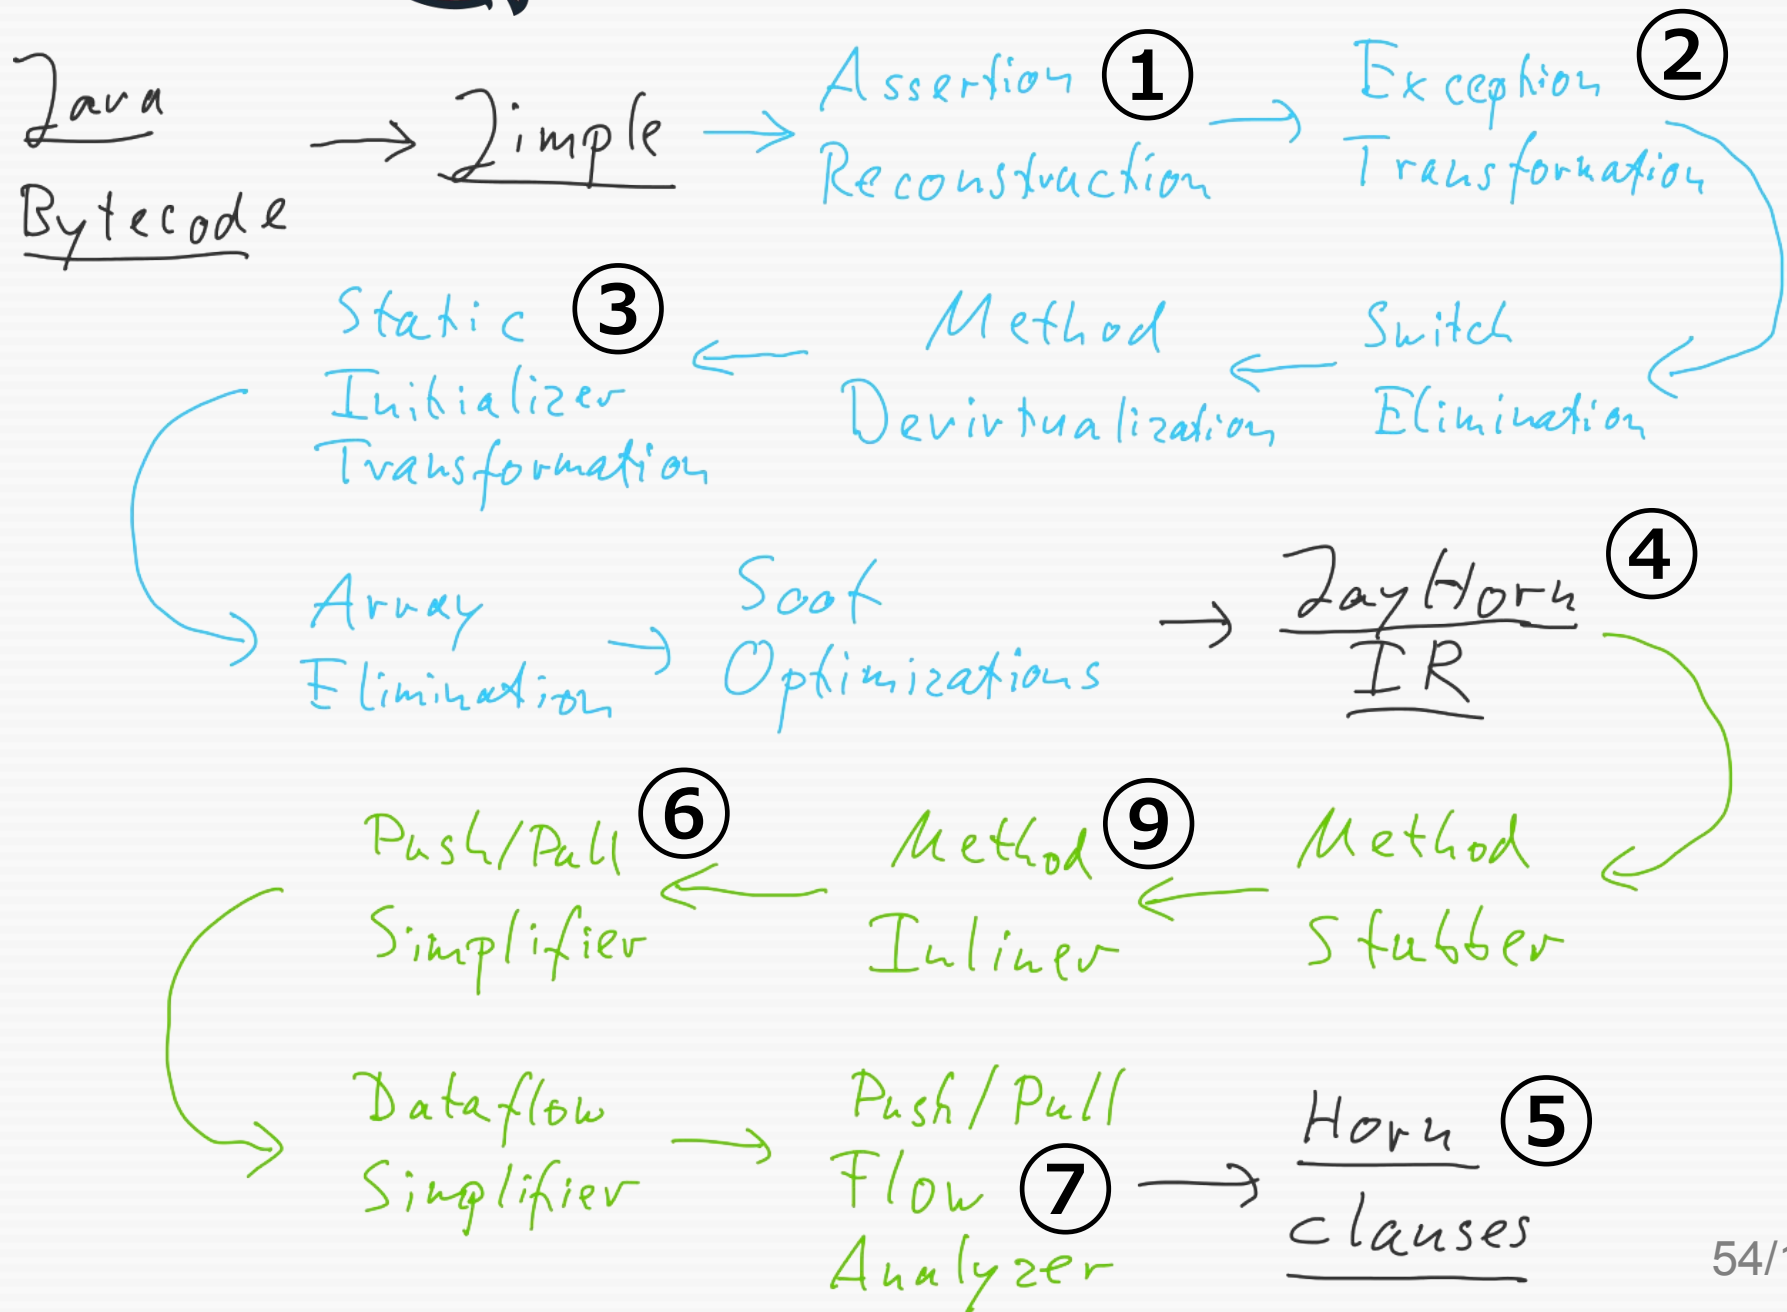 Java
Bytecode
Jimple
Assertion ①
Reconstruction
Exception ②
Transformation
Switch
Elimination
Method
Devirtualization
Static ③
Initializer
Transformation
Array
Elimination
Soot
Optimizations
JayHorn ④
IR
Method
Stubber
Method ⑨
Inliner
Push/Pull ⑥
Simplifier
Dataflow
Simplifier
Push/Pull
Flow ⑦
Analyzer
Horn ⑤
clauses
54/1